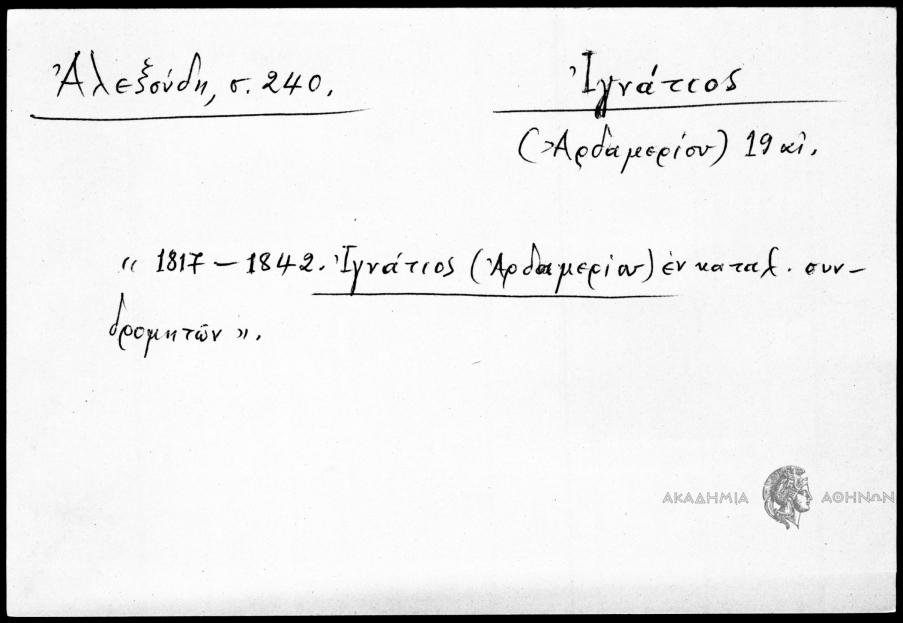 Ἀλεξούδη, σ. 240.
Ἰγνάτιος
(Ἀρδαμερίου) 19 αἰ.
« 1817 – 1842. Ἰγνάτιος (Ἀρδαμερίου) ἐν καταλ. συν–
δρομητῶν ».
ΑΚΑΔΗΜΙΑ ΑΘΗΝΩΝ